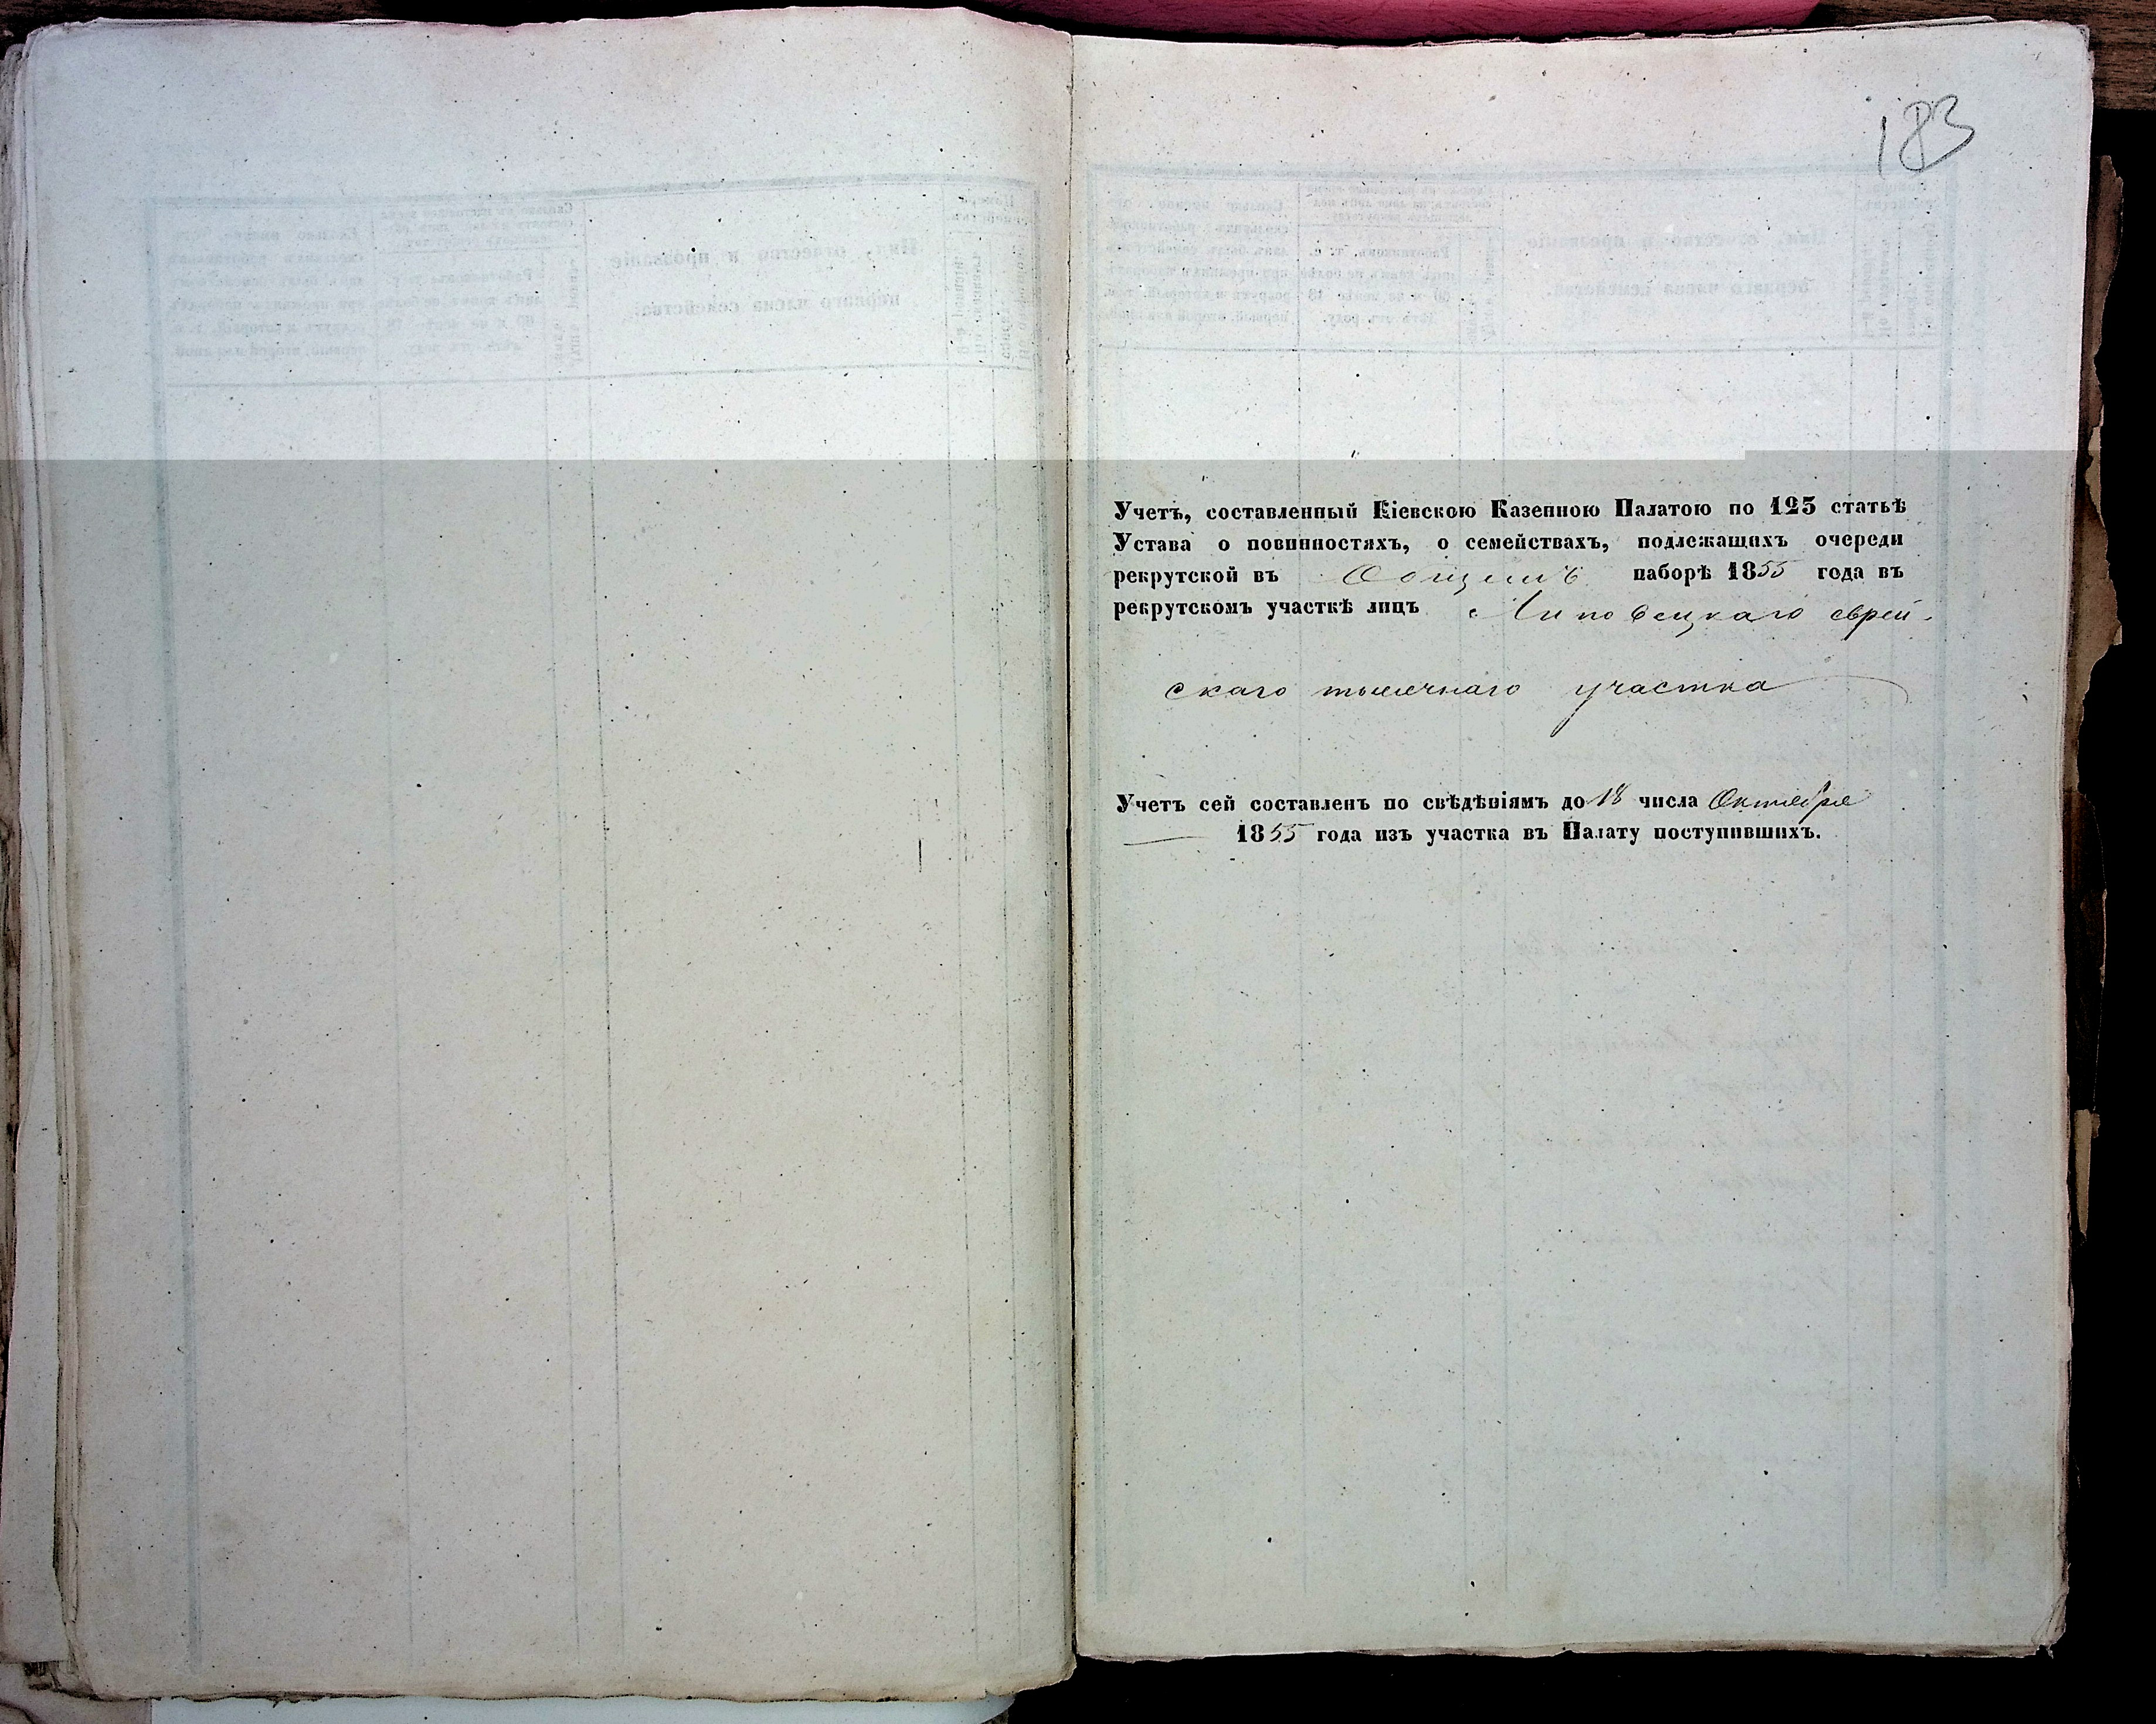 183
Учетъ, составленный Кіевскою Казенною Палатою по 125 статьѣ
Устава о повинностяхъ, о семействахъ, подлежащихъ очереди
рекрутской въ Общемъ наборѣ 1855 года въ
рекрутскомъ участкѣ лицъ Липовецкаго еврей-
скаго тысячнаго участка
Учетъ сей составленъ по свѣдѣніямъ до 18 числа Октября
1855 года изъ участка въ Палату поступившихъ.